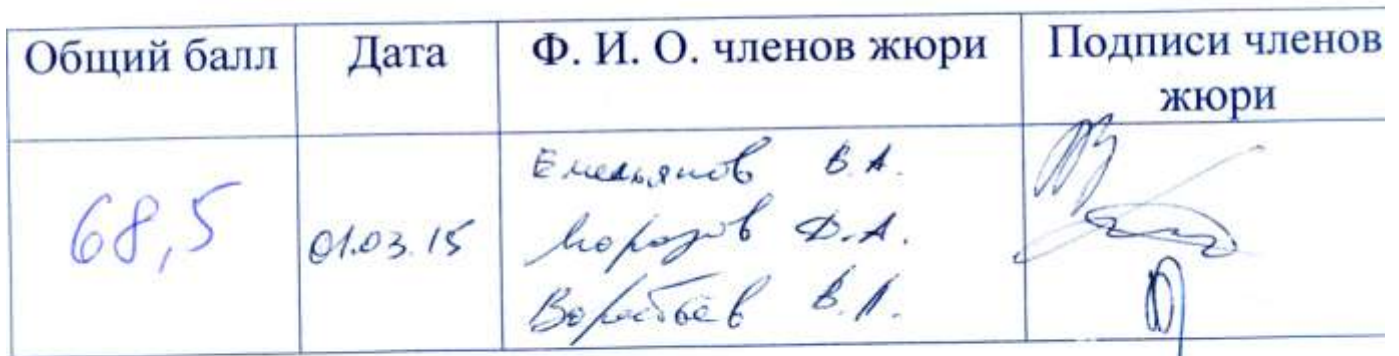 Общий балл
Дата
Ф. И. О. членов жюри
Подписи членов
жюри
68,5
01.03.15
Емельянов В.А.
Морозов Д.А.
Воробьёв В.